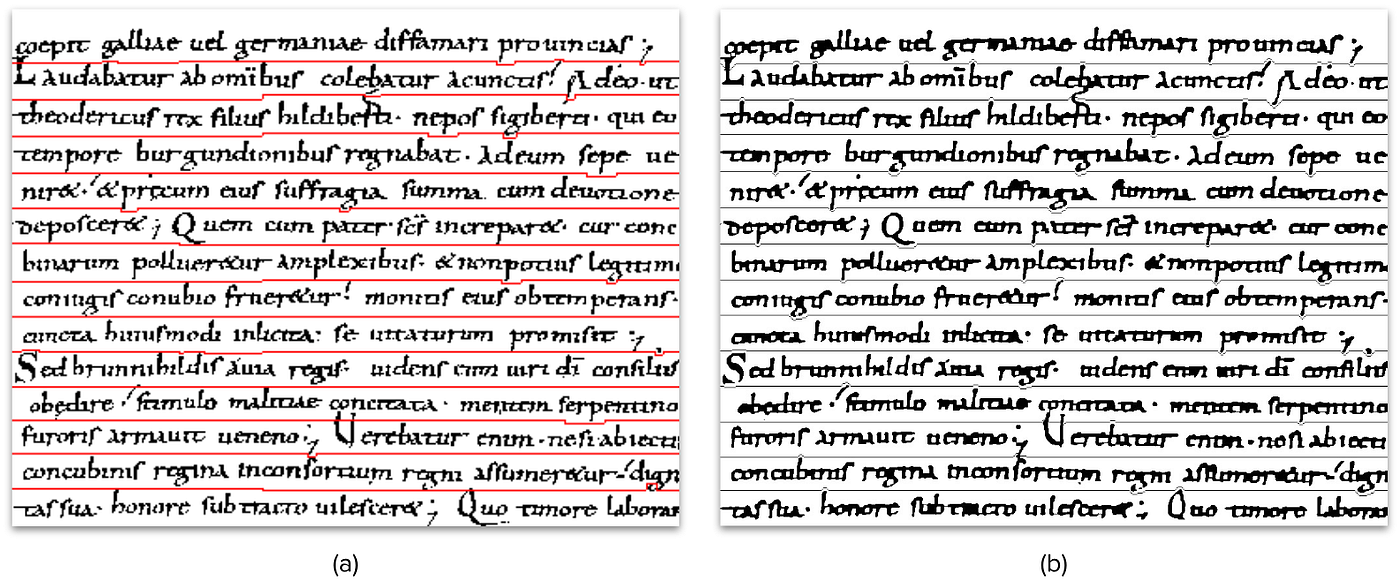 coepit galliae uel germaniae diffamari prouincias ;
Laudabatur ab omībus colebatur acunctis! Adeo·ut
theodericus rex filius hildiberti· nepos sigiberti· qui eo
tempore burgundionibus regnabat· Adeum sepe ue
nir&·´ & precum eius suffragia summa cum deuotione
deposcer& ; Quem cum pater sc̄s increpar&· cur conc
binarum pollueretur amplexibus· & non potius legitim
coniugis conubio frueretur! monitis eius obtemperans·
cuncta huiusmodi inlicita· se uitaturum promisit ;
Sed brunnihildis auia regis· uidens eum uiri dī consiliis
obedire ´ stimulo malitiae concitata · mentem serpentino
furoris armauit ueneno ; Uerebatur enim·ne si abiecti
concubinis regina inconsortium regni assumeretur·´ dign
tas sua· honore subtracto uilescer& ; Quo timore laboran
(a)
coepit galliae uel germaniae diffamari prouincias ;
Laudabatur ab omībus colebatur acunctis! Adeo·ut
theodericus rex filius hildiberti· nepos sigiberti· qui eo
tempore burgundionibus regnabat· Adeum sepe ue
nir&·´ & precum eius suffragia summa cum deuotione
deposcer& ; Quem cum pater sc̄s increpar&· cur conc
binarum pollueretur amplexibus· & non potius legitim
coniugis conubio frueretur! monitis eius obtemperans·
cuncta huiusmodi inlicita· se uitaturum promisit ;
Sed brunnihildis auia regis· uidens eum uiri dī consiliis
obedire ´ stimulo malitiae concitata · mentem serpentino
furoris armauit ueneno ; Uerebatur enim·ne si abiecti
concubinis regina inconsortium regni assumeretur·´ dign
tas sua· honore subtracto uilescer& ; Quo timore laboran
(b)